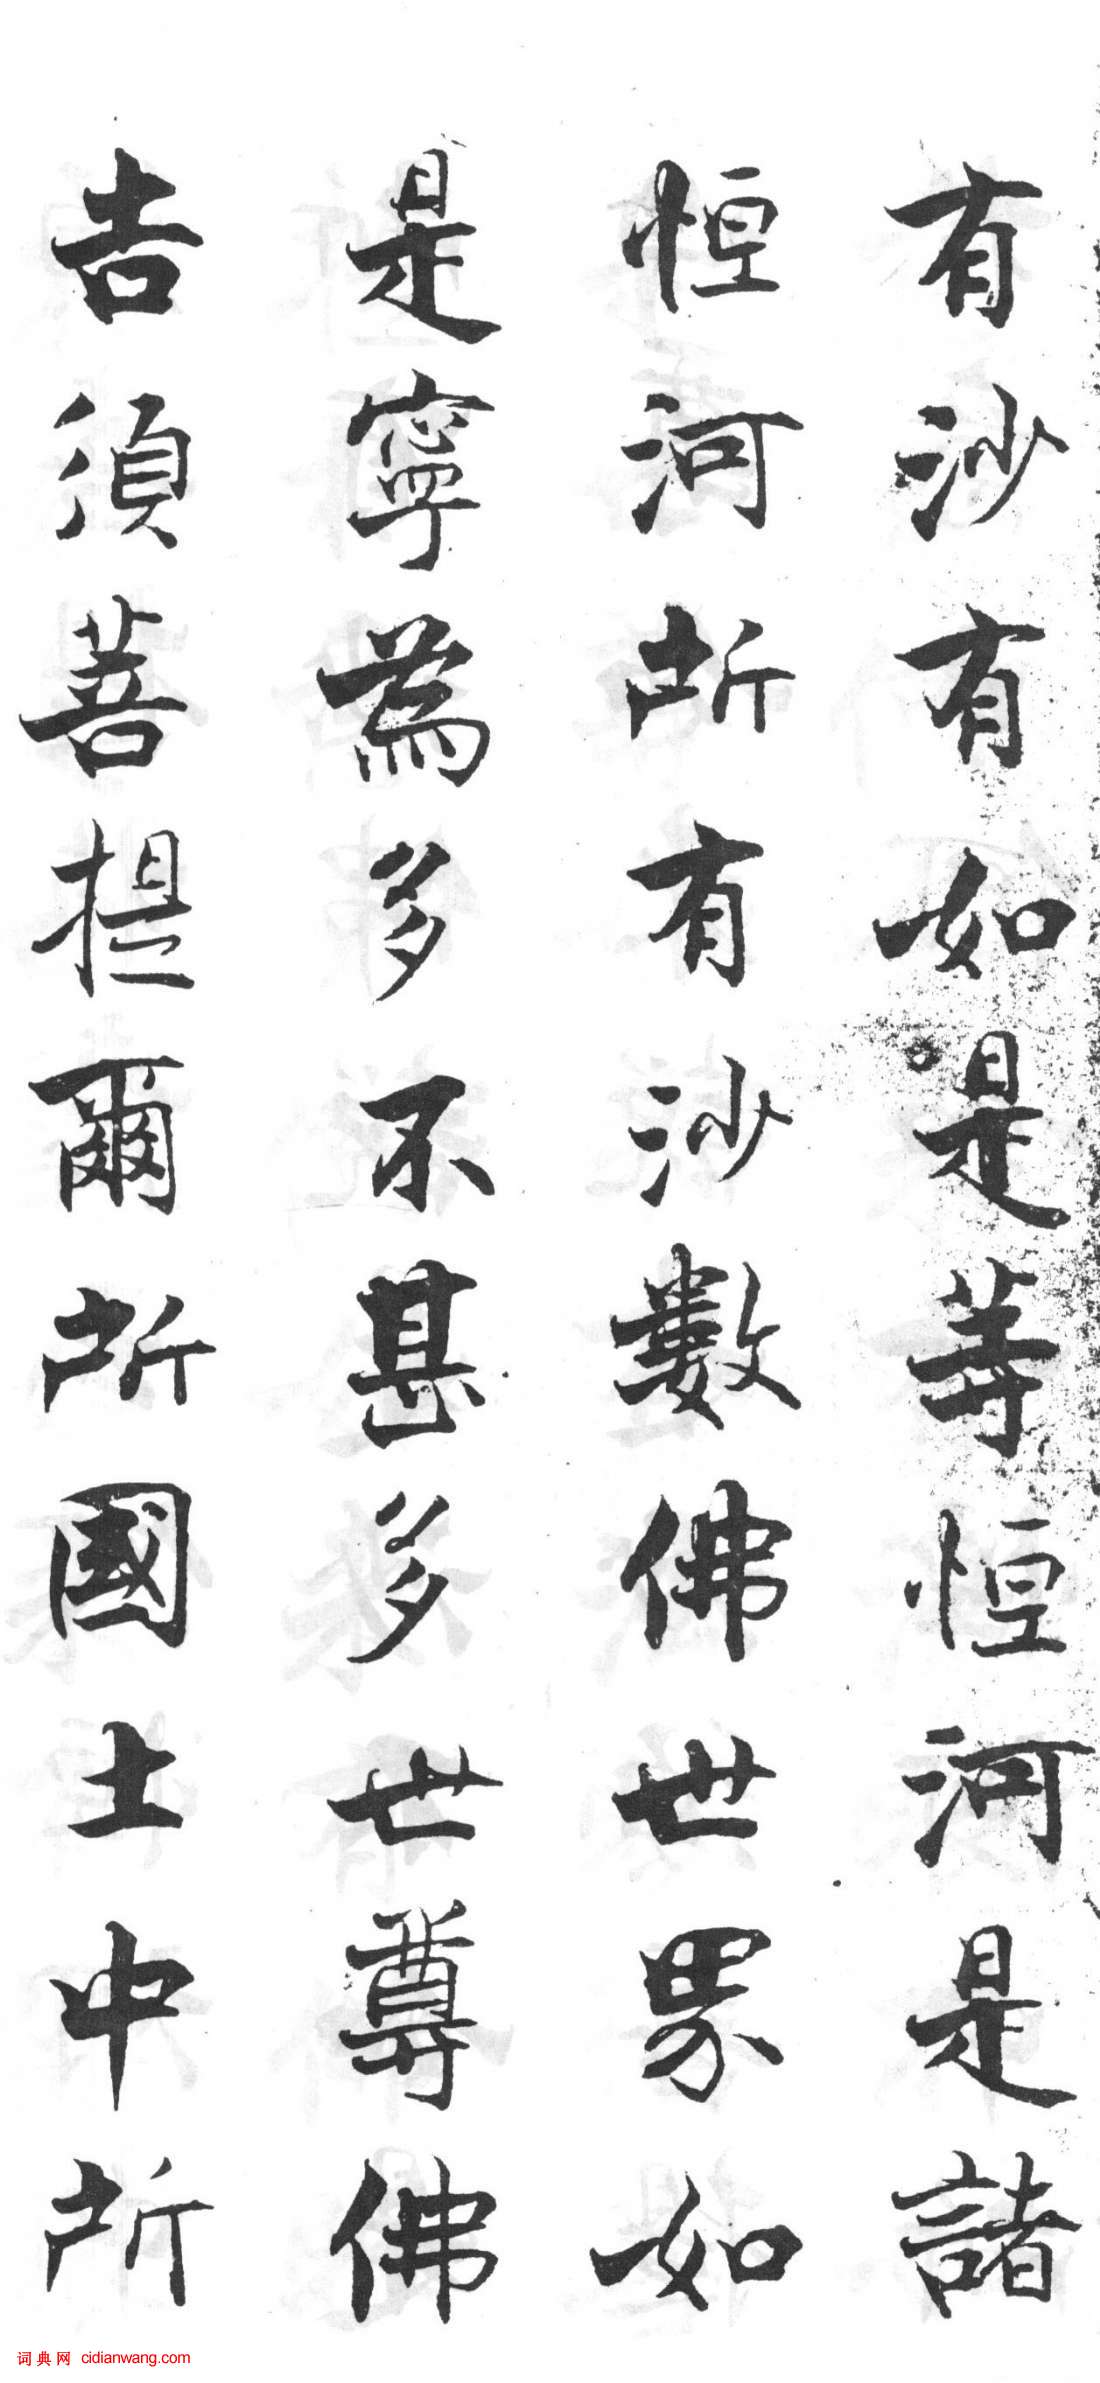 有沙有如是等恒河是諸
恒河所有沙數佛世界如
是寧為多不甚多世尊佛
告須菩提爾所國土中所
词典网 cidianwang.com